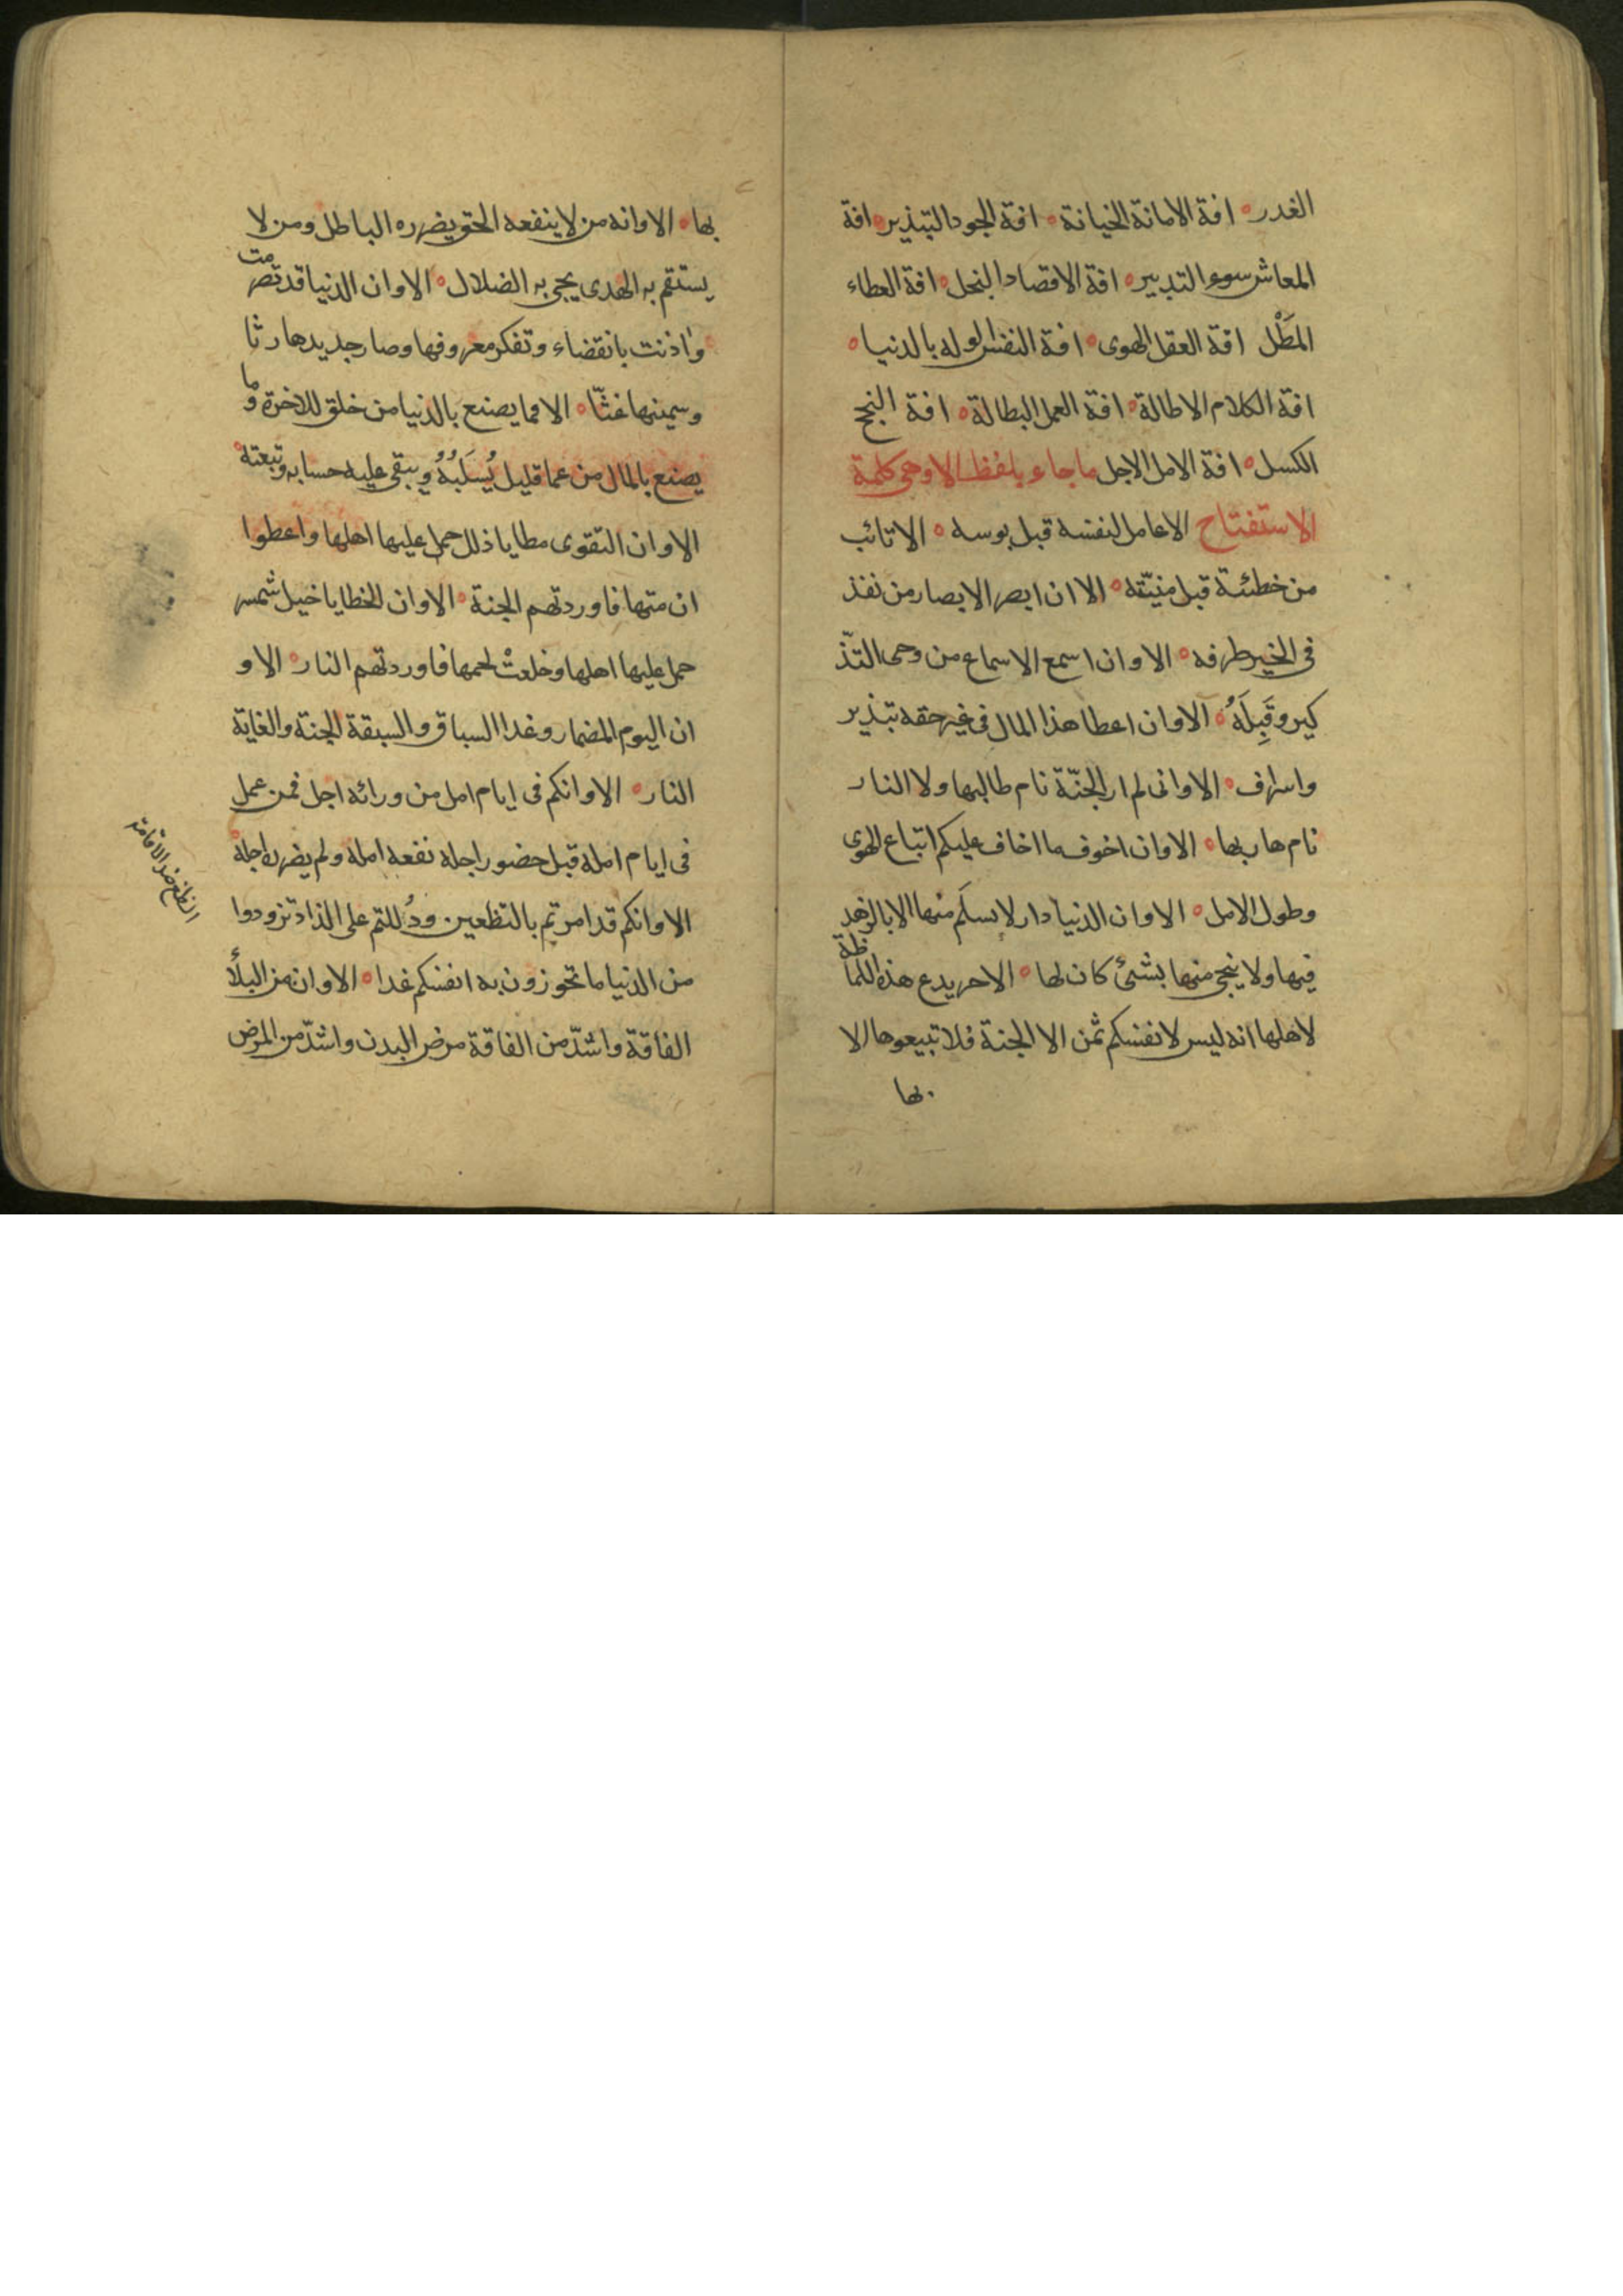 الغدر ه افة الامانة الخيانة ه افة الجود التبذير ه افة
المعاش سوء التدبير ه افة الاقصاد البخل ه افة العطاء
المَطْل افة العقل الهوى ه افة النفس الوله بالدنيا ه
افة الكلام الاطالة ه افة العمل البطالة ه افة النجح
الكسل ه افة الامل الاجل ما جاء بلفظ الا وهى كلمة
الاستفتاح الا عامل لنفسه قبل بوسه ه الا تائب
من خطئته قبل منيّته ه الا ان ابصر الابصار من نفذ
فى الخير طرفه ه الا وان اسمع الاسماع من وعى التذّ
كير وقَبِلَهُ ه الا وان اعطا هذا المال فى غير حقه تبذير
واسراف ه الا وانى لم ار الجنّة نام طالبها ولا النار
نام هاربها ه الا وان اخوف ما اخاف عليكم اتباع الهوى
وطول الامل ه الا وان الدنيا دار لا يسلَم منها الا بالزهد
فيها ولا ينجى منها بشئ كان لها ه الا حر يدع هذه اللماظة
لاهلها انه ليس لانفسكم ثمن الا الجنة فلا تبيعوها الا
بها
بها ه الا وانه من لا ينفعه الحق يضرره الباطل ومن لا
يستقم به الهدى يجى به الضلال ه الا وان الدنيا قد تصرمت
واذنت بانقضاء وتفكر معروفها وصار جديدها رثا
وسمينها غثّا ه الا فما يصنع بالدنيا من خلق للاخرة وما
يصنع بالمال من عما قليل يُسلَبُهُ ويبقى عليه حسابه وتبعته ه
الا وان التقوى مطايا ذلل حمل عليها اهلها واعطوا
ان متها فاوردتهم الجنة ه الا وان الخطايا خيل شمس
حمل عليها اهلها وخلعتْ لحمها فاوردتهم النار ه الا و
ان اليوم المضمار وغدا السباق والسبقة الجنة والغاية
النار ه الا وانكم فى ايام امل من ورائه اجل فمن عمل
فى ايام امله قبل حضور اجله نفعه امله ولم يضره اجله ه
الا وانكم قد امرتم بالتظعين ودُللتم على الذاد تزودوا
من الدنيا ما تحوزون به انفسكم غدا ه الا وان من البلأ
الفاقة واشدّ من الفاقة مرض البدن واشدّ من المرض
ضد الاقامة